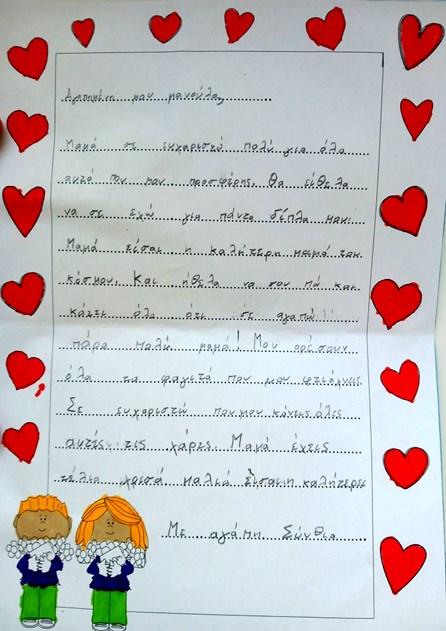 Αγαπημένη μου μανούλα,
Μαμά σε ευχαριστώ πολύ για όλα
αυτά που μου προσφέρης. Θα είθελα
να σε εχώ για πάντα δίπλα μου.
Μαμά είσαι η καλήτερη μαμά του
κόσμου. Και ήθελα να σου πώ και
κάτει όλο ότι σε αγαπώ
πάρα πολύ μαμά! Μου αρέσουν
όλα τα φαγιτά που μου φτιάχνεις
Σε ευχαριστώ που μου κάνεις όλες
αυτές τις χάρες. Μαμά έχεις
τέλια χρισά μαλιά Είσαι η καλήτερη
Με αγάπη Σύνθια